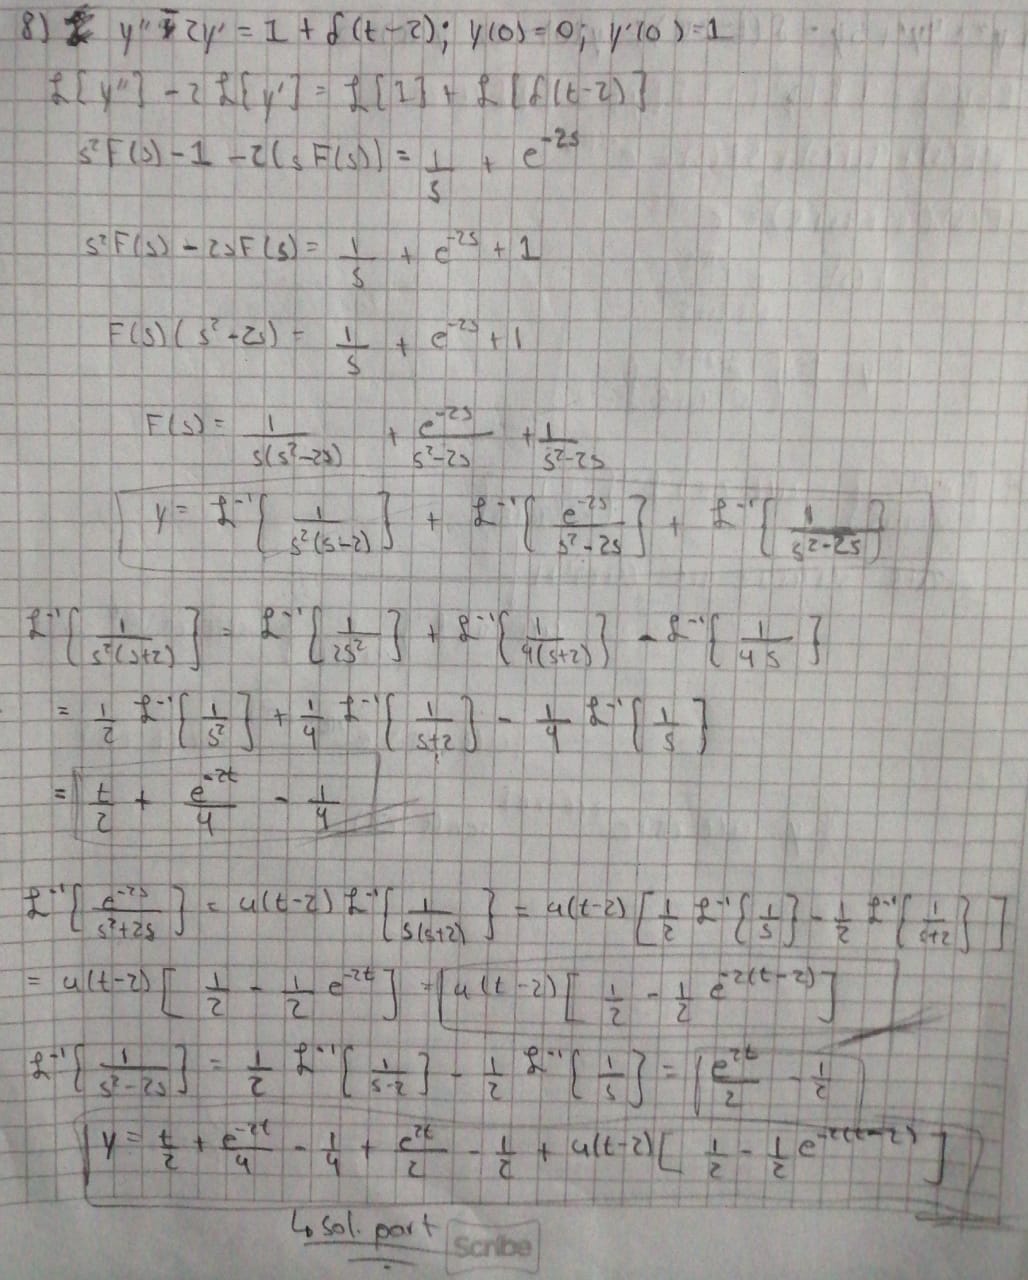 8) y'' - 2y' = 1 + δ(t-2); y(0)=0; y'(0)=1
ℒ[y''] - 2ℒ[y'] = ℒ[1] + ℒ[δ(t-2)]
s²F(s) - 1 - 2(sF(s)) = 1/s + e^{-2s}
s²F(s) - 2sF(s) = 1/s + e^{-2s} + 1
F(s)(s²-2s) = 1/s + e^{-2s} + 1
F(s) = 1/(s(s²-2s)) + e^{-2s}/(s²-2s) + 1/(s²-2s)
y = ℒ⁻¹[1/(s²(s-2))] + ℒ⁻¹[e^{-2s}/(s²-2s)] + ℒ⁻¹[1/(s²-2s)]
ℒ⁻¹[1/(s²(s+2))] = ℒ⁻¹[1/(2s²)] + ℒ⁻¹[1/(4(s+2))] - ℒ⁻¹[1/(4s)]
= 1/2 ℒ⁻¹[1/s²] + 1/4 ℒ⁻¹[1/(s+2)] - 1/4 ℒ⁻¹[1/s]
= t/2 + e^{-2t}/4 - 1/4
ℒ⁻¹[e^{-2s}/(s²+2s)] = u(t-2) ℒ⁻¹[1/(s(s+2))] = u(t-2)[1/2 ℒ⁻¹[1/s] - 1/2 ℒ⁻¹[1/(s+2)]]
= u(t-2)[1/2 - 1/2 e^{-2t}] = u(t-2)[1/2 - 1/2 e^{-2(t-2)}]
ℒ⁻¹[1/(s²-2s)] = 1/2 ℒ⁻¹[1/(s-2)] - 1/2 ℒ⁻¹[1/s] = e^{2t}/2 - 1/2
y = t/2 + e^{-2t}/4 - 1/4 + e^{2t}/2 - 1/2 + u(t-2)[1/2 - 1/2 e^{-2(t-2)}]
↳ sol. part
Scribe